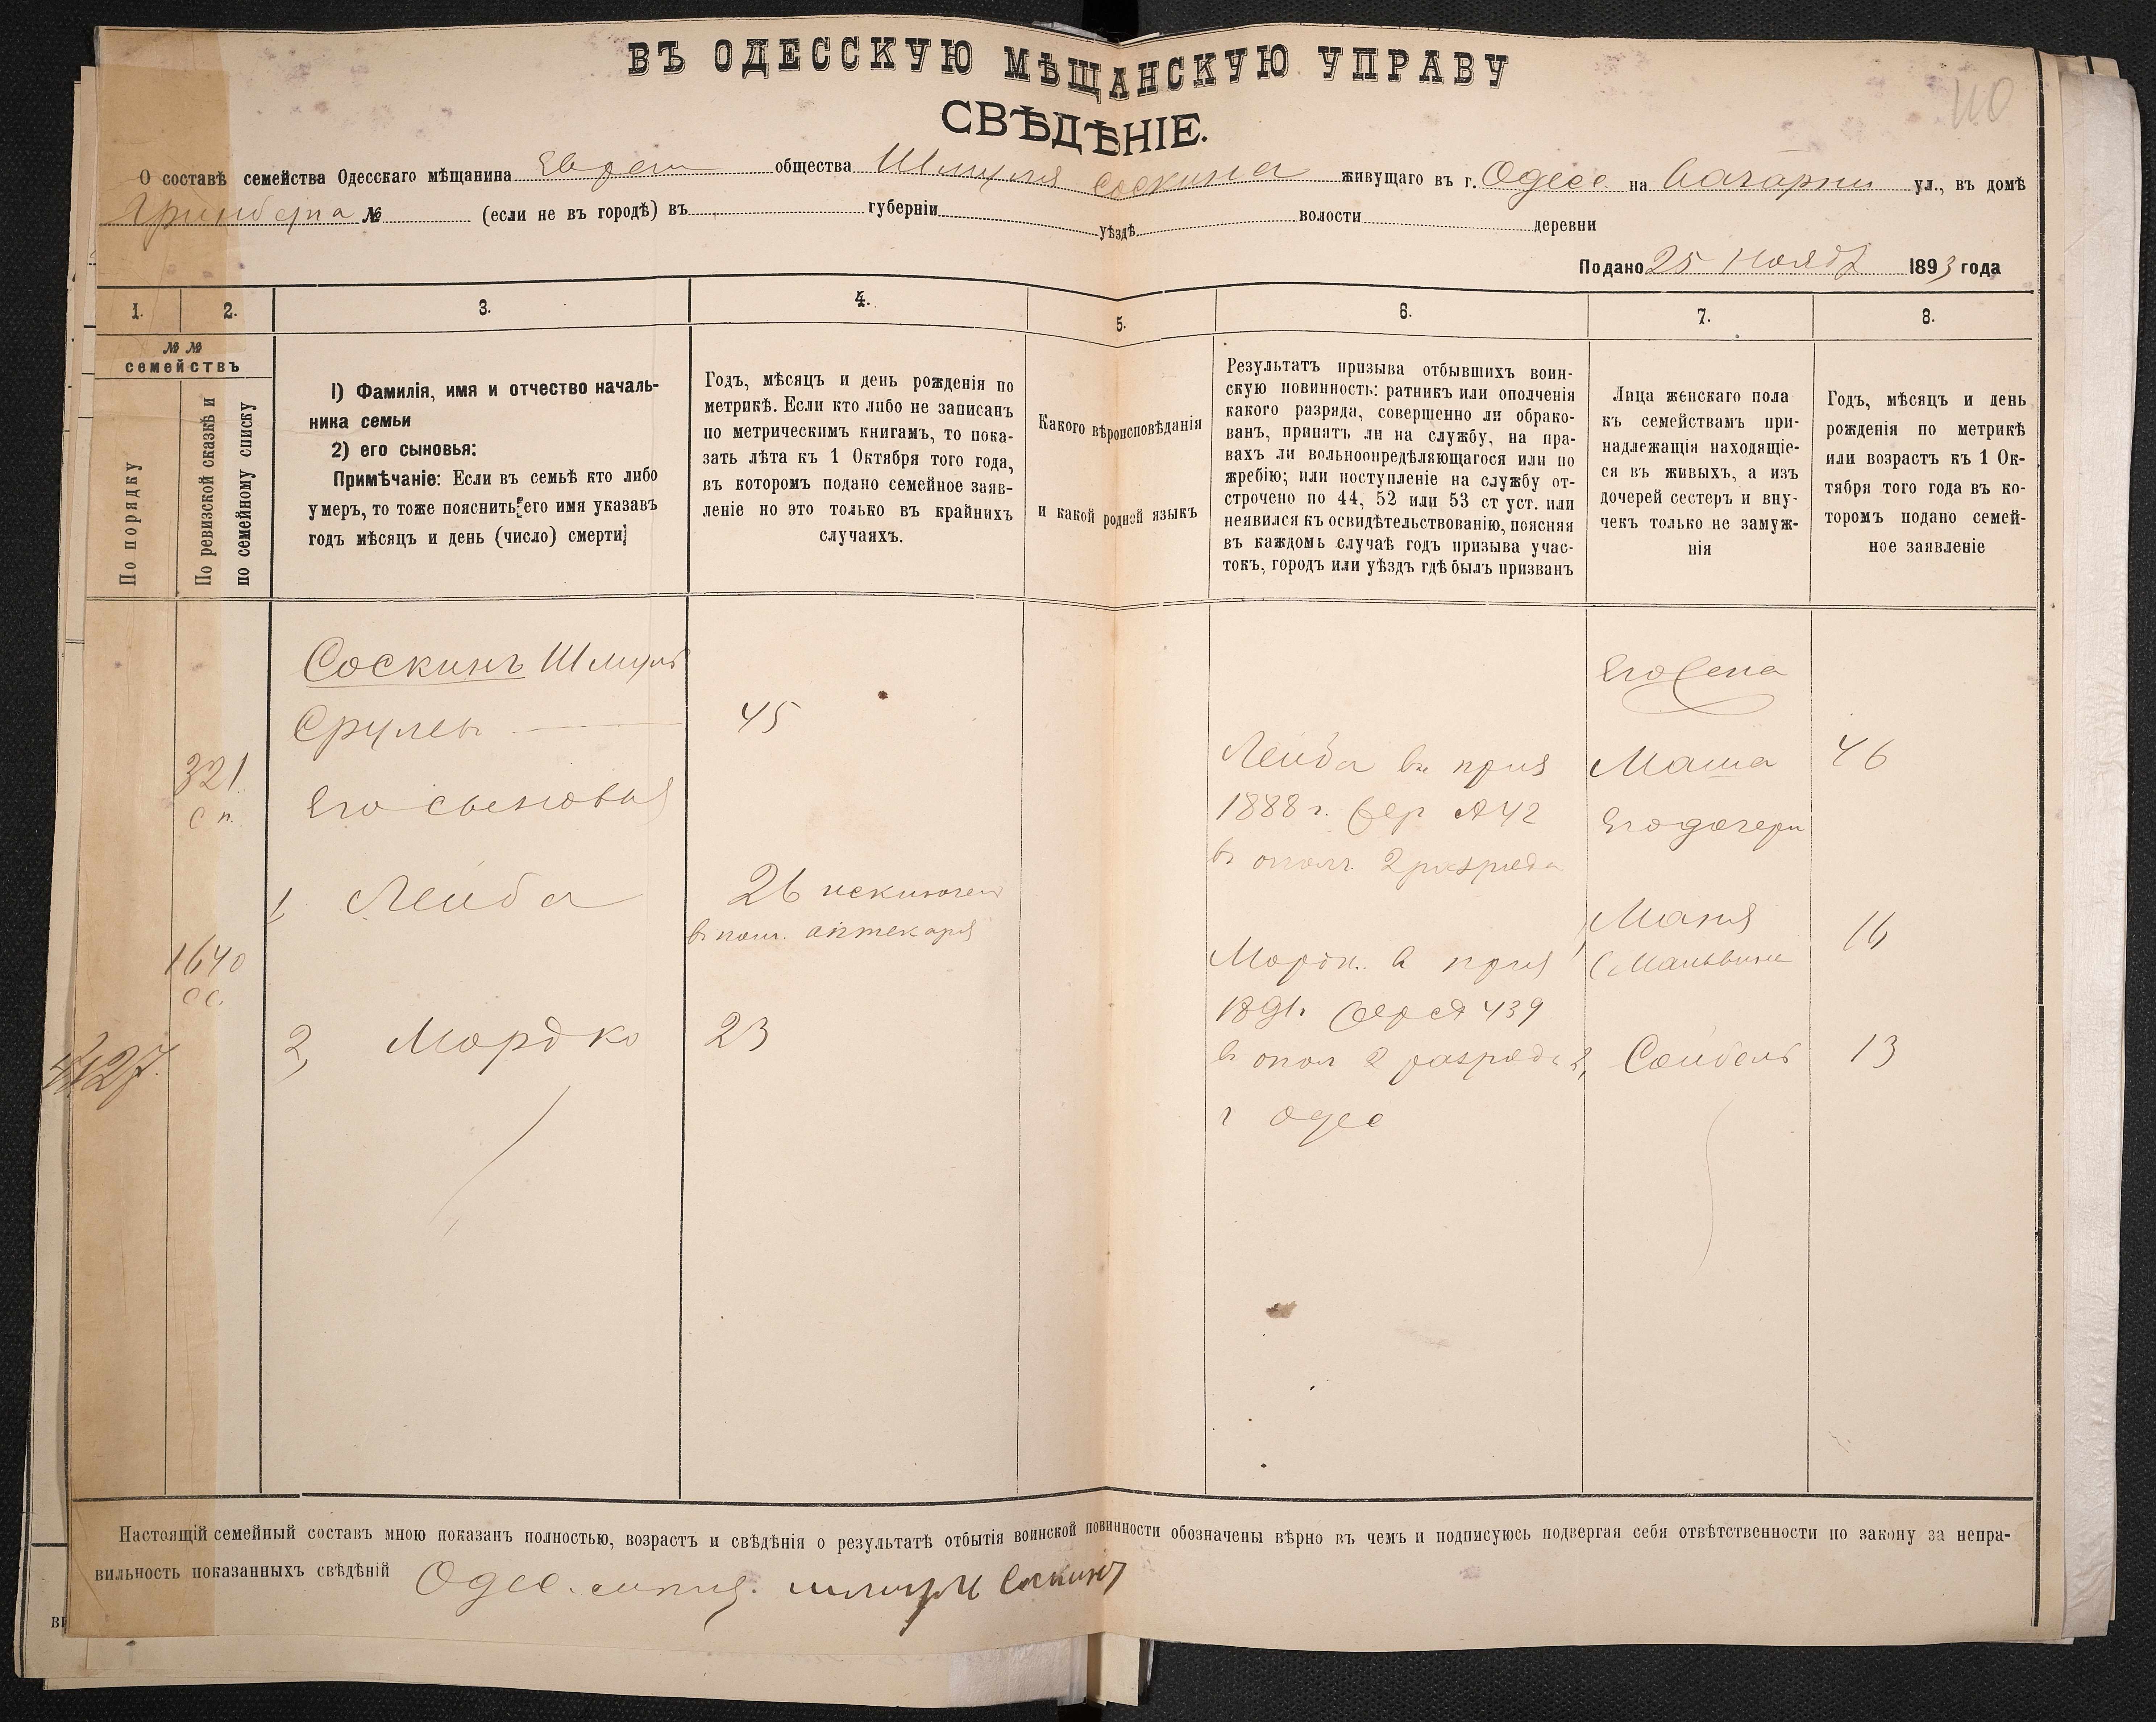 ВЪ ОДЕССКУЮ МѢЩАНСКУЮ УПРАВУ
СВѢДѢНІЕ.
110
О составѣ семейства Одесскаго мѣщанина Еврея общества Шмуля Соскина живущаго въ г. Одесс на ул., въ домѣ
Гринберга № (если не въ городѣ) въ губерніи уѣздѣ волости деревни
Подано 25 Нояб 1893 года
1. 2. 3. 4. 5. 6. 7. 8.
№ №
семействъ
По порядку
По ревизской сказкѣ и
по семейному списку
1) Фамилія, имя и отчество началь-
ника семьи
2) его сыновья:
Примѣчаніе: Если въ семьѣ кто либо
умеръ, то тоже пояснить его имя указавъ
годъ мѣсяцъ и день (число) смерти
Годъ, мѣсяцъ и день рожденія по
метрикѣ. Если кто либо не записанъ
по метрическимъ книгамъ, то пока-
зать лѣта къ 1 Октября того года,
въ которомъ подано семейное заяв-
леніе но это только въ крайнихъ
случаяхъ.
Какого вѣроисповѣданія
и какой родной языкъ
Результатъ призыва отбывшихъ воин-
скую повинность: ратникъ или ополченія
какого разряда, совершенно ли обрако-
ванъ, принятъ ли на службу, на пра-
вахъ ли вольноопредѣляющагося или по
жребію; или поступленіе на службу от-
строчено по 44, 52 или 53 ст уст. или
неявился къ освидѣтельствованію, поясняя
въ каждомъ случаѣ годъ призыва учас-
токъ, городъ или уѣздъ гдѣ былъ призванъ
Лица женскаго пола
къ семействамъ при-
надлежащія находящіе-
ся въ живыхъ, а изъ
дочерей сестеръ и вну-
чекъ только не замуж-
нія
Годъ, мѣсяцъ и день
рожденія по метрикѣ
или возрастъ къ 1 Ок-
тября того года въ ко-
торомъ подано семей-
ное заявленіе
321
с п.
1640
сс.
Соскинъ Шмуль
Срулев
45
Его сыновья
1 Лейба
26 исключен
в аптекаря
2, Мордко
23
Лейба в приз
1888 г. жер № 42
въ опол. 2 разряда
Мордк. в приз
1891. жер № 439
в опол 2 разряда
г Одес
Его жена
Маша 46
Его дочери
1, Маня 16
(Мальвина
2, Сейбель 13
Настоящій семейный составъ мною показанъ полностью, возрастъ и свѣдѣнія о результатѣ отбытія воинской повинности обозначены вѣрно въ чемъ и подписуюсь подвергая себя отвѣтственности по закону за непра-
вильность показанныхъ свѣдѣній Одес. шмуль Соскинъ